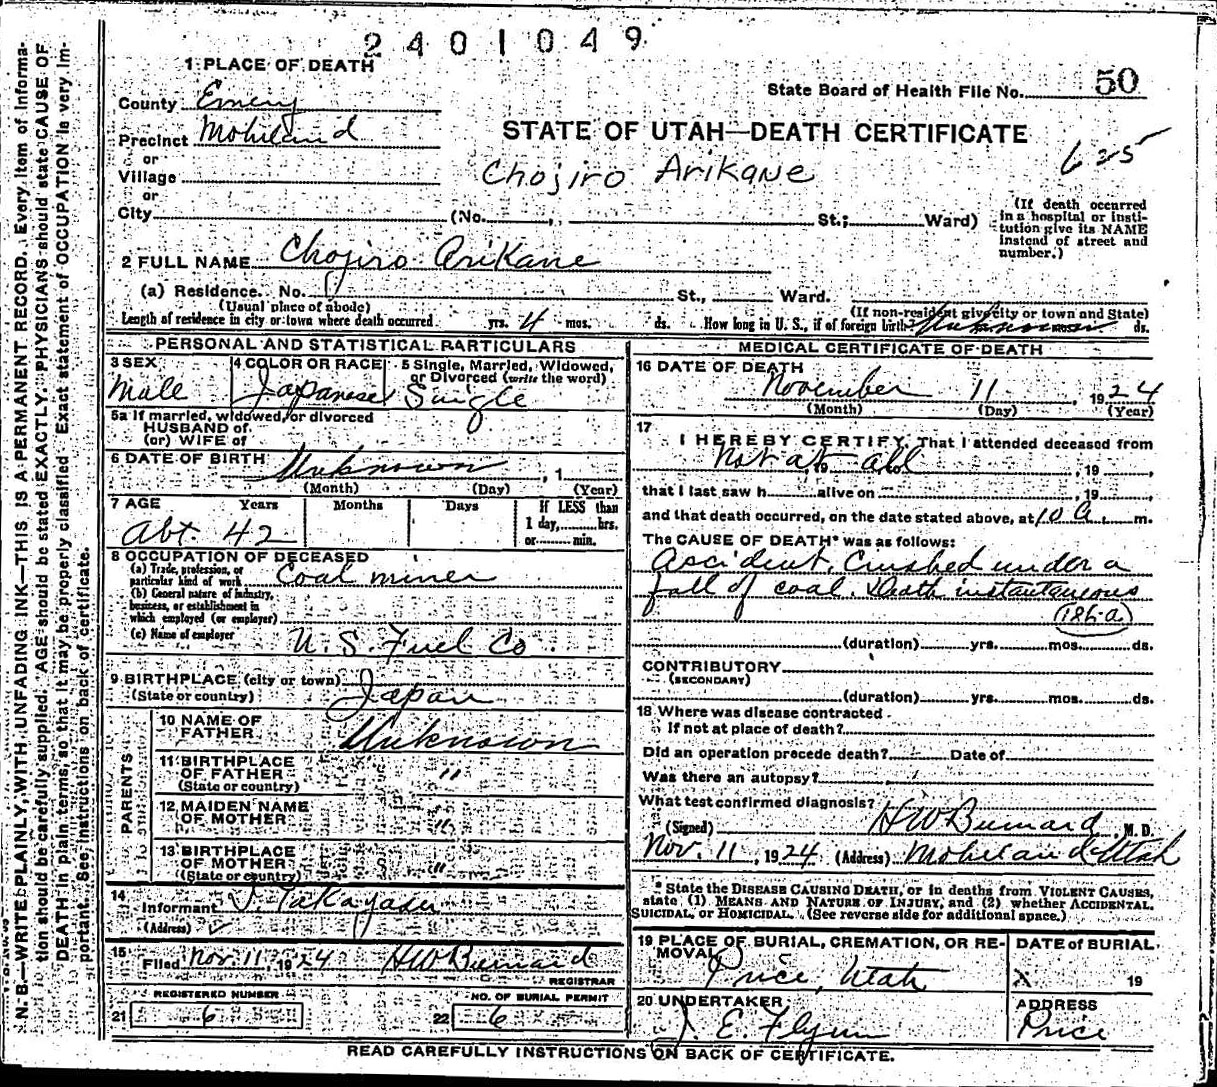 2401049
1 PLACE OF DEATH
State Board of Health File No. 50
County Emery
Precinct Mohrland
STATE OF UTAH—DEATH CERTIFICATE
625
or
Village
Chojiro Arikane
or
City (No. , St.; Ward)
(If death occurred in a hospital or institution give its NAME instead of street and number.)
2 FULL NAME Chojiro Arikane
(a) Residence. No. St., Ward.
(Usual place of abode) (If non-resident give city or town and State)
Length of residence in city or town where death occurred yrs. 4 mos. ds. How long in U. S., if of foreign birth? Unknown ds.
PERSONAL AND STATISTICAL PARTICULARS
3 SEX 4 COLOR OR RACE 5 Single, Married, Widowed, or Divorced (write the word)
Male Japanese Single
5a If married, widowed, or divorced
HUSBAND of
(or) WIFE of
6 DATE OF BIRTH Unknown , 1
(Month) (Day) (Year)
7 AGE Years Months Days If LESS than 1 day, hrs. or min.
Abt. 42
8 OCCUPATION OF DECEASED
(a) Trade, profession, or particular kind of work Coal miner
(b) General nature of industry, business, or establishment in which employed (or employer)
(c) Name of employer U. S. Fuel Co
9 BIRTHPLACE (city or town)
(State or country) Japan
PARENTS
10 NAME OF FATHER Unknown
11 BIRTHPLACE OF FATHER (State or country) "
12 MAIDEN NAME OF MOTHER "
13 BIRTHPLACE OF MOTHER (State or country) "
14
Informant J. Takayasu
(Address)
15
Filed Nov. 11, 1924 H W Burnard
REGISTRAR
REGISTERED NUMBER NO. OF BURIAL PERMIT
21 6 22 6
MEDICAL CERTIFICATE OF DEATH
16 DATE OF DEATH
November 11 , 1924
(Month) (Day) (Year)
17
I HEREBY CERTIFY, That I attended deceased from
Not at all , 19 , 19 ,
that I last saw h alive on , 19 ,
and that death occurred, on the date stated above, at 10 a. m.
The CAUSE OF DEATH* was as follows:
Accident. Crushed under a
fall of coal. Death instantaneous
186-a
(duration) yrs. mos. ds.
CONTRIBUTORY
(SECONDARY)
(duration) yrs. mos. ds.
18 Where was disease contracted
If not at place of death?
Did an operation precede death? Date of
Was there an autopsy?
What test confirmed diagnosis?
(Signed) H W Burnard , M. D.
Nov. 11, 1924 (Address) Mohrland Utah
* State the DISEASE CAUSING DEATH, or in deaths from VIOLENT CAUSES,
state (1) MEANS AND NATURE OF INJURY, and (2) whether ACCIDENTAL,
SUICIDAL, or HOMICIDAL. (See reverse side for additional space.)
19 PLACE OF BURIAL, CREMATION, OR REMOVAL DATE of BURIAL
Price, Utah X 19
20 UNDERTAKER ADDRESS
J. E. Flynn Price
READ CAREFULLY INSTRUCTIONS ON BACK OF CERTIFICATE.
N. B.—WRITE PLAINLY, WITH UNFADING INK—THIS IS A PERMANENT RECORD. Every item of Informa-
tion should be carefully supplied. AGE should be stated EXACTLY. PHYSICIANS should state CAUSE OF
DEATH in plain terms, so that it may be properly classified. Exact statement of OCCUPATION is very im-
portant. See instructions on back of certificate.